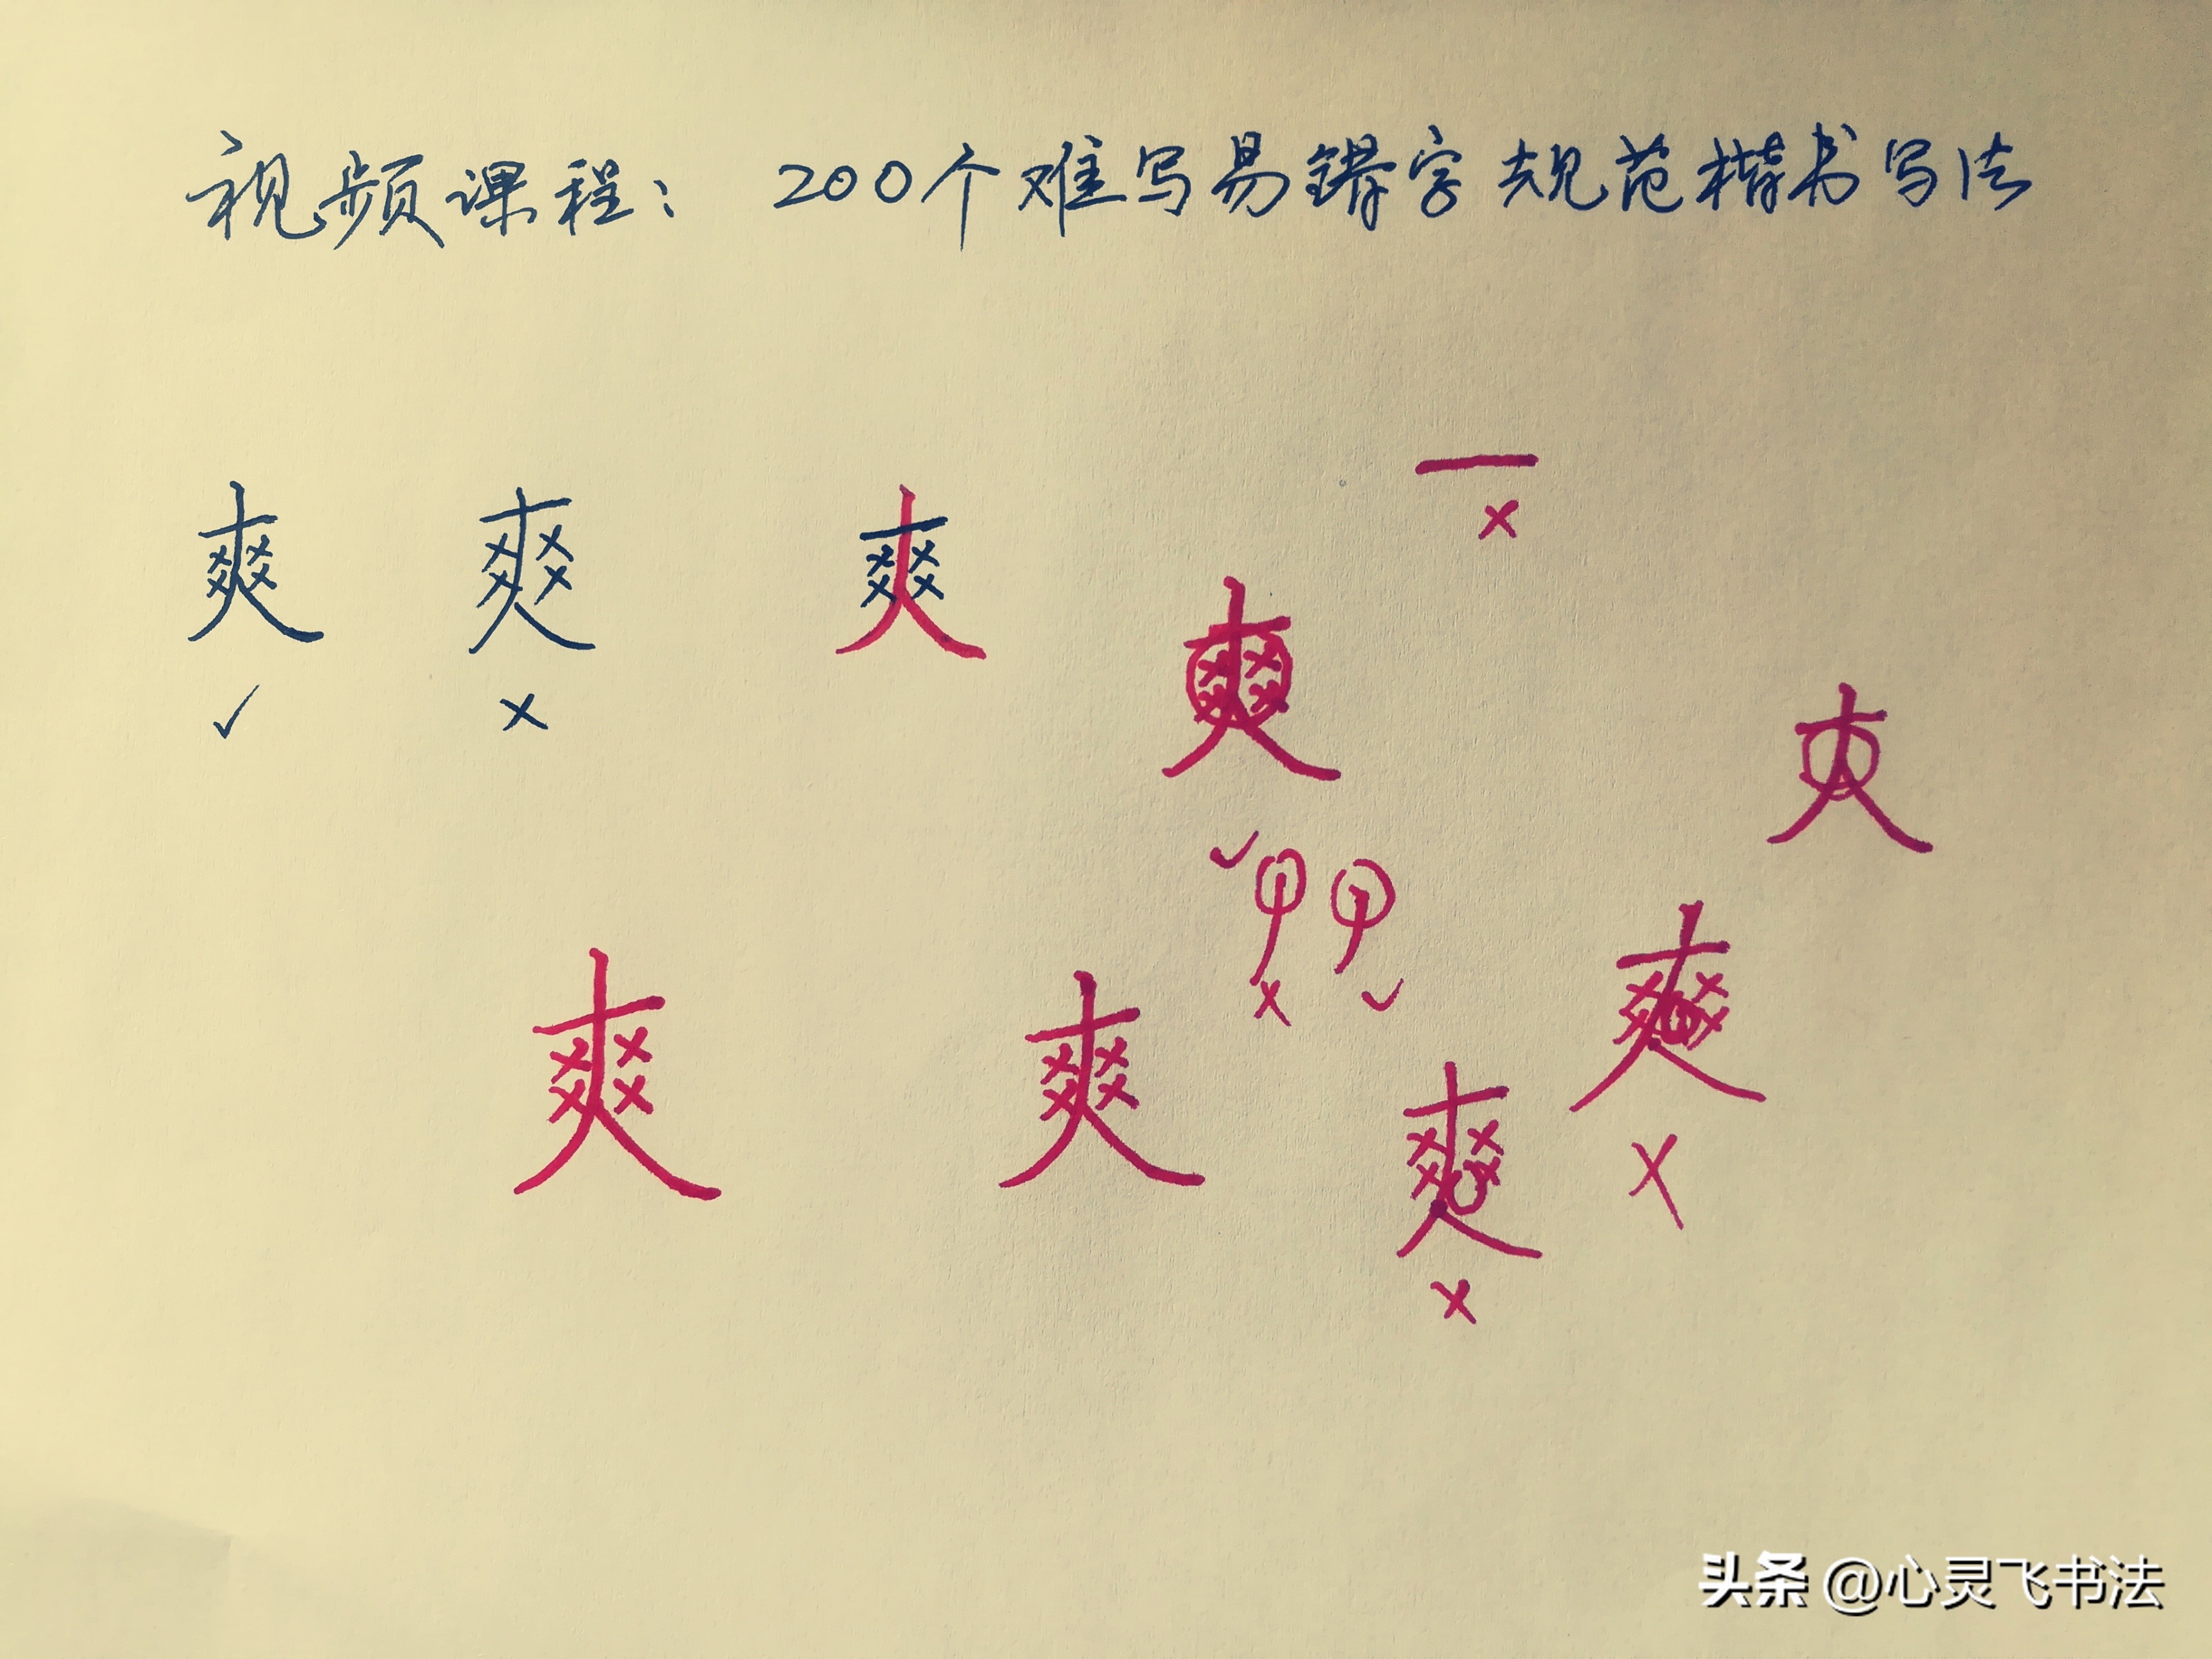 视频课程： 200个难写易错字规范楷书写法
爽 爽 爽 爽
✓ ×
爽 爽 爽 爽
× ×
头条 @心灵飞书法